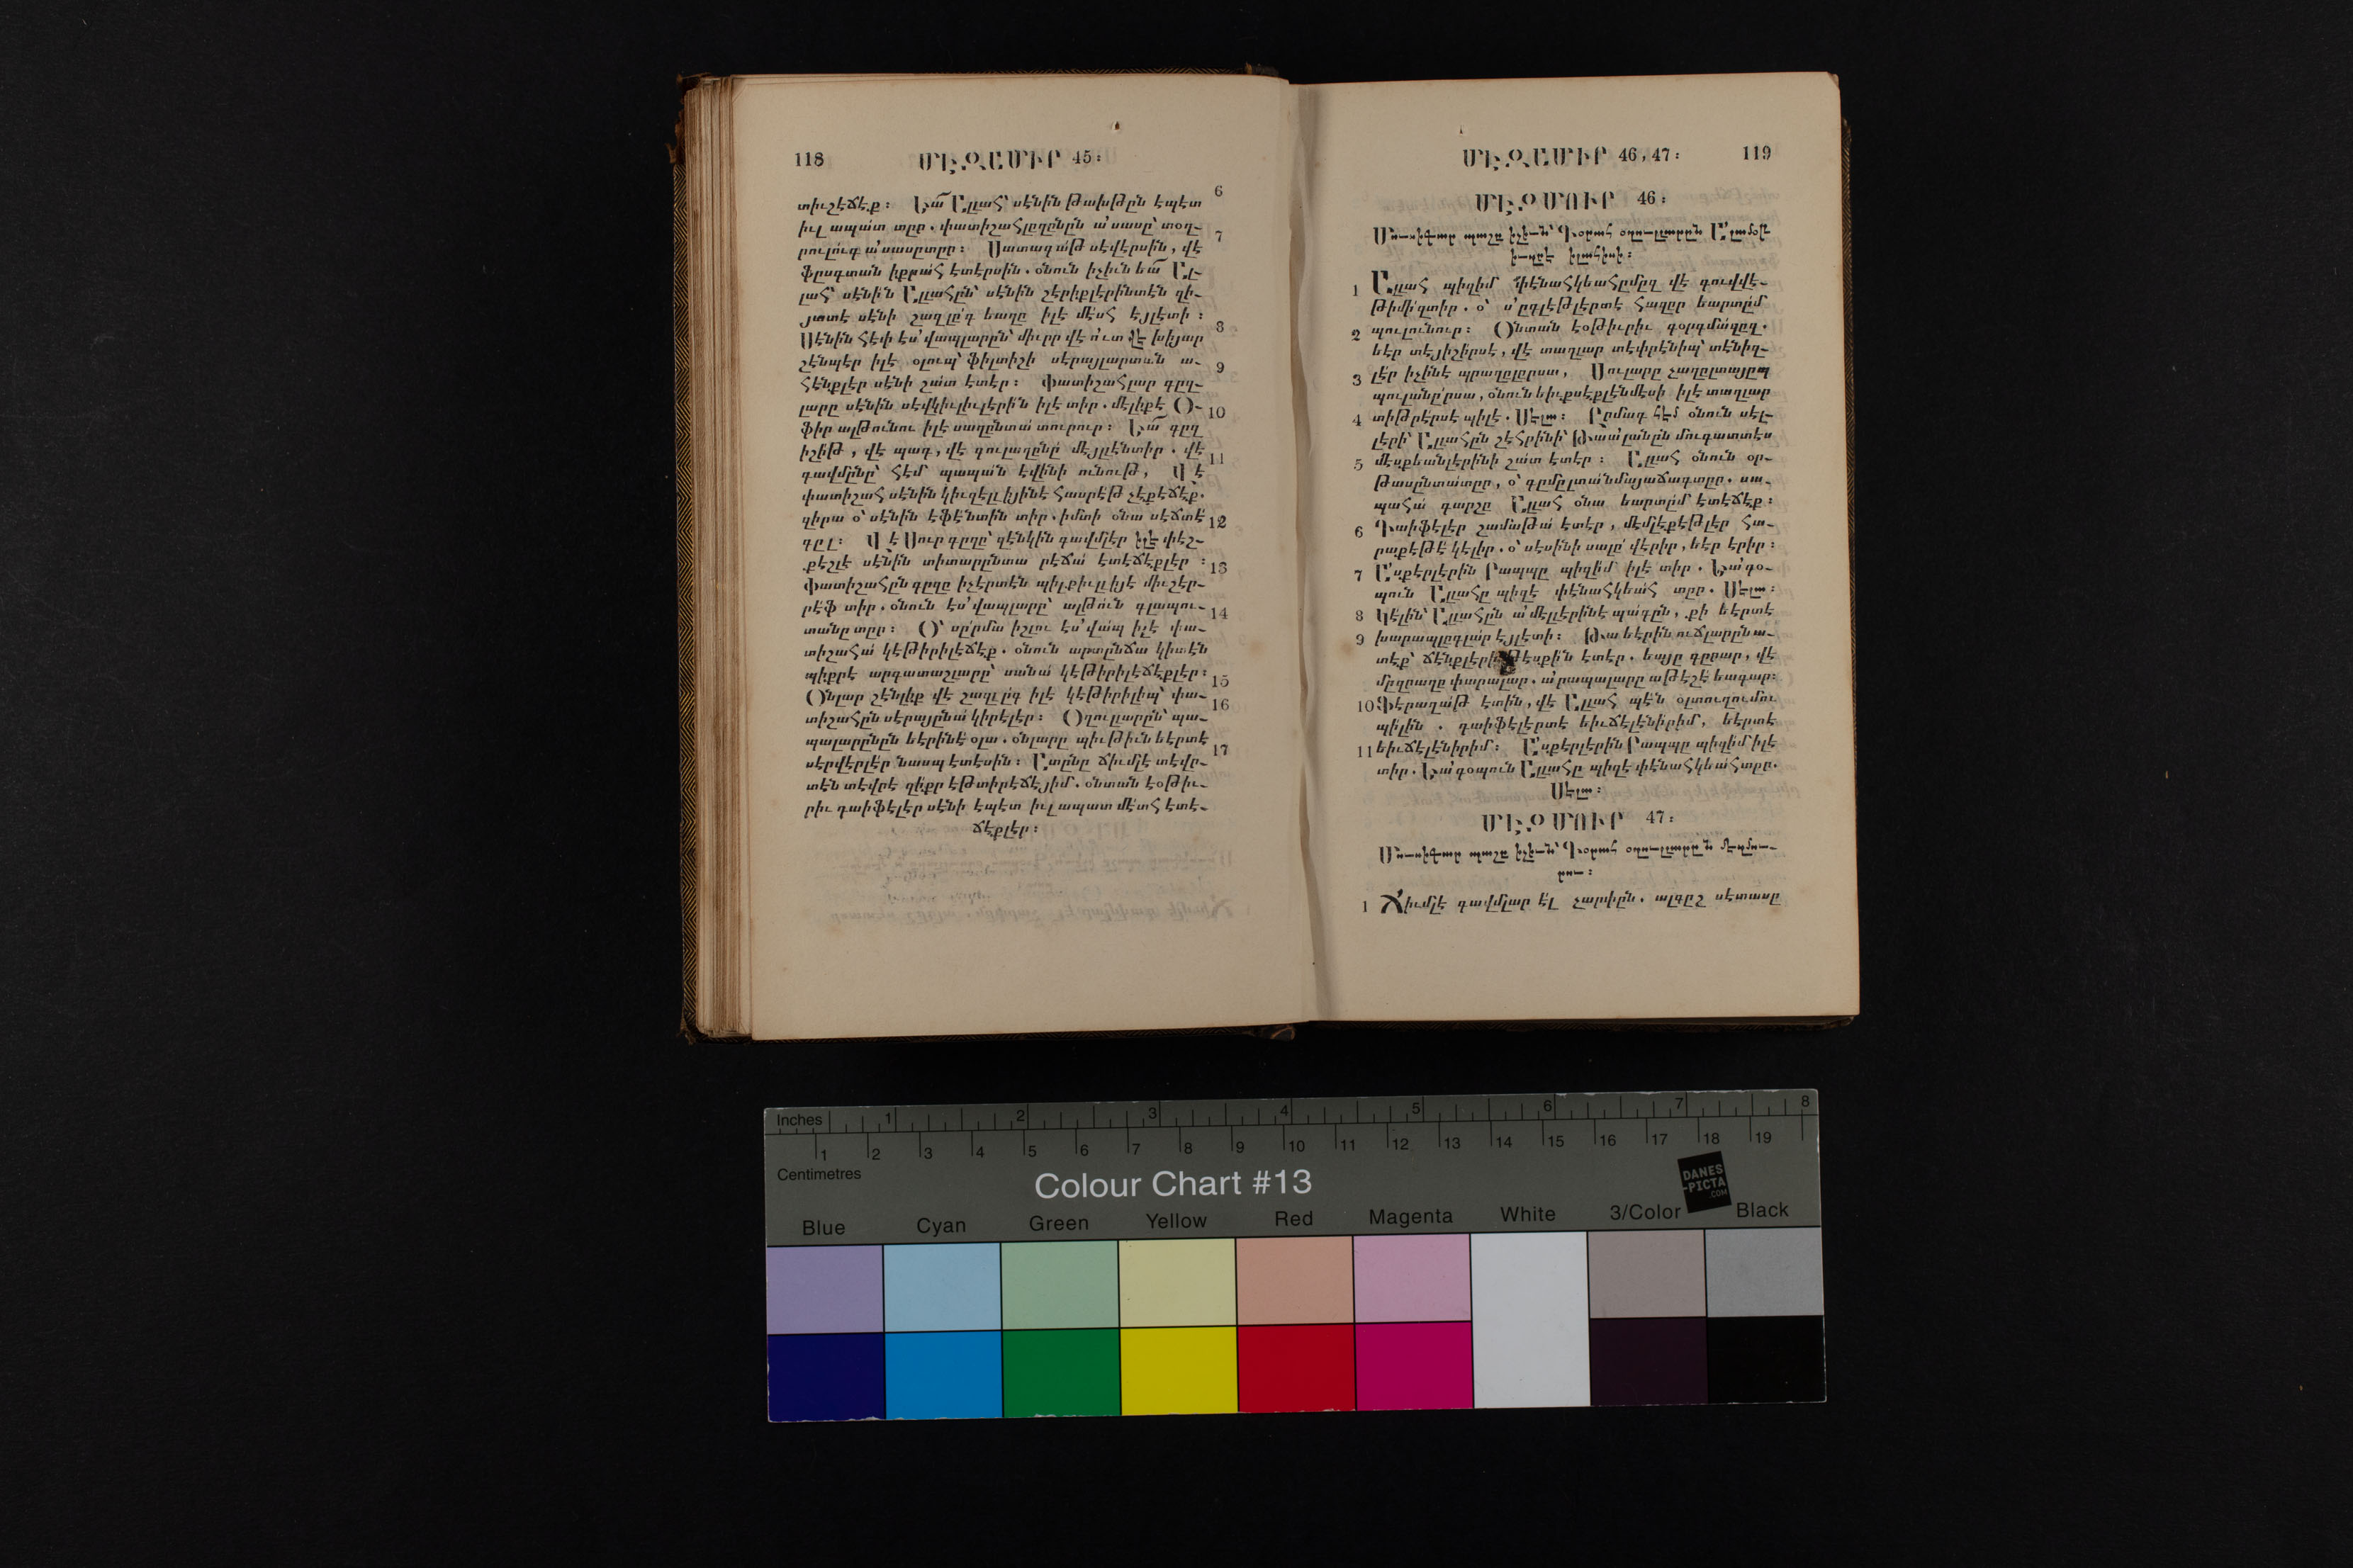 118 ՄԷԶԱՄԻՐ 45։
6
տիւշէճէք։ Եա՜ Ըլլահ՝ սէնին թախթըն էպէտ
իւլ ապատ տըր. փատիշահլըղընըն ա՛սասը՝ տօղ֊
7
րուլուգ ա՛սասըտըր։ Սատագաթ սէվէրսին, վէ
ֆըսգտան իքրահ էտէրսին. օնուն իչիւն եա՜ Ըլ֊
լահ՝ սէնին Ըլլահըն՝ սէնին շէրիքլէրինտէն զի֊
յատէ սէնի շազլըգ եաղը իլէ մէսհ էյլէտի։
8
Սէնին հէփ էս՛վապլարըն՝ միւրր վէ ո՛ւտ վէ խիյար
չէնպէր իլէ օլուպ՝ ֆիլտիշի սէրայլարտան ա֊
9
հէնքլէր սէնի շատ էտէր։ Փատիշահլար գըզ֊
լարը սէնին սէվկիւլիւլէրին իլէ տիր. մէլիքէ Օ֊
10
ֆիր ալթունու իլէ սաղընտա տուրուր։ Եա՜ գըզ
իշիթ, վէ պագ, վէ գուլաղընը մէյլէնտիր. վէ
11
գավմընը՝ հէմ պապան էվինի ունութ, Վէ
փատիշահ սէնին կիւզէլլիյինէ հասրէթ չէքէճէք.
զիրա օ՝ սէնին էֆէնտին տիր. իմտի օնա սէճտէ
12
գըլ։ Վէ Սուր գըզը՝ զէնկին գավմլէր իլէ փէշ֊
քէշլէ սէնին տիտարընտա րէճա էտէճէքլէր։
13
Փատիշահըն գըզը իչէրտէն պիլքիւլլիյէ միւշէր֊
րէֆ տիր. օնուն էս՛վապլարը՝ ալթուն գլապու֊
14
տանը տըր։ Օ՝ սըրմա իշլու էս՛վապ իլէ փա֊
տիշահա կէթիրիլէճէք. օնուն արտընճա կիտէն
պիքրէ արգատաշլարը՝ սանա կէթիրիլէճէքլէր։
15
Օնլար շէնլիք վէ շազլըգ իլէ կէթիրիլիպ՝ փա֊
16
տիշահըն սէրայընա կիրէլէր։ Օղուլլարըն՝ պա֊
պալարընըն եէրինէ օլա. օնլարը պիւթիւն եէրտէ
17
սէրվէրլէր նասպ էտէսին։ Ըտընը ճիւմլէ տէվր֊
տէն տէվրէ զիքր էթտիրէճէյիմ. օնտան էօթիւ֊
րիւ գաիֆէլէր սէնի էպէտ իւլ ապատ մէտհ էտէ֊
ճէքլէր։
ՄԷԶԱՄԻՐ 46, 47։ 119
ՄԷԶՄՈՒՐ 46։
Մուսիգար պաշը իչիւն՝ Գօրահ օղուլլարըն Ը՛լամօթ
իւզրէ իլահիսի։
1 Ըլլահ պիզիմ փէնահկեահըմըզ վէ գուվվէ֊
թիմիզտիր. օ՝ ս՛ըգլէթլէրտէ հազըր եարտըմ
2 պուլունուր։ Օնտան էօթիւրիւ գօրգմազըզ.
եէր տէյիշիրսէ, վէ տաղլար տէփրէնիպ՝ տէնիզ֊
3 լէր իչինէ պրաղըլըրսա, Սուլարը չաղըլտայըպ
պուլանըրսա, օնուն եիւքսէքլէնմէսի իլէ տաղլար
4 տիթրէրսէ պիլէ. Սելա։ Ըրմագ հէմ օնուն սէլ֊
լէրի՝ Ըլլահըն շէհրինի՝ Թաա՛լանըն մուգատտէս
5 մէսքեանլէրինի շատ էտէր։ Ըլլահ օնուն օր֊
թասընտատըր, օ՝ գըմըլտանմայաճագտըր. սա֊
պահա գարշը Ըլլահ օնա եարտըմ էտէճէք։
6 Գաիֆէլէր շամաթա էտէր, մէմլէքէթլէր հա֊
րաքէթէ կէլիր. օ՝ սէսինի սալը՛ վէրիր, եէր էրիր։
7 Ը՛սքէրլէրին Րապպը պիզիմ իլէ տիր. Եա՛գօ֊
պուն Ըլլահը պիզէ փէնահկեահ տըր. Սելա։
8 Կէլին՝ Ըլլահըն ա՛մէլլէրինէ պագըն, քի եէրտէ
9 խարապլըգլար էյլէտի։ Թա եէրին ուճլարընա֊
տէք՝ ճէնքլէրի թէսքին էտէր. եայը գըրար, վէ
մըզրաղը փարալար. ա՛րապալարը աթէշէ եագար։
10 Ֆէրաղաթ էտին, վէ Ըլլահ պէն օլտուղումու
պիլին. գաիֆէլէրտէ եիւճէլէնիրիմ, եէրտէ
11 եիւճէլէնիրիմ։ Ը՛սքէրլէրին Րապպը պիզիմ իլէ
տիր. Եա՛գօպուն Ըլլահը պիզէ փէնահկեահտըր.
Սելա։
ՄԷԶՄՈՒՐ 47։
Մուսիգար պաշը իչիւն՝ Գօրահ օղուլլարըն մէզմու֊
րու։
1 Ճիւմլէ գավմլար էլ չարփըն. ալգըշ սէտասը
Inches 1 2 3 4 5 6 7 8
1 2 3 4 5 6 7 8 9 10 11 12 13 14 15 16 17 18 19
Centimetres
Colour Chart #13
DANES
-PICTA
.COM
Blue Cyan Green Yellow Red Magenta White 3/Color Black